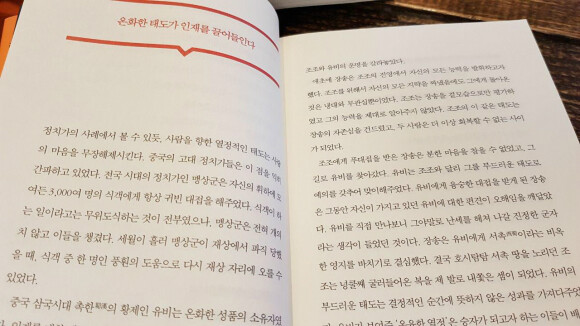 온화한 태도가 인재를 끌어들인다
정치가의 사례에서 볼 수 있듯, 사람을 향한 열정적인 태도는
의 마음을 무장해제시킨다. 중국의 고대 정치가들은 이 점을
간파하고 있었다. 전국 시대의 정치가인 맹상군은 자신의 휘하에
여든 3,000여 명의 식객에게 항상 귀빈 대접을 해주었다. 식객이 하
는 일이라고는 무위도식하는 것이 전부였으나, 맹상군은 전혀 개의
치 않고 이들을 챙겼다. 세월이 흘러 맹상군이 재상에서 파직 당했
을 때, 식객 중 한 명인 풍원의 도움으로 다시 재상 자리에 오를 수
있었다.
중국 삼국시대 촉한의 황제인 유비는 온화한 성품의 소유자였
조조와 유비의 운명을 갈라놓았다.
애초에 장송은 조조의 진영에서 자신의 모든 능력을 발휘하고자
했다. 조조를 위해서 자신의 모든 지략을 짜냈음에도 그에게 돌아온
것은 냉대와 무관심뿐이었다. 조조는 장송을 겉모습으로만 평가하
였고 그의 능력을 제대로 알아주지 않았다. 조조의 이 같은 태도는
장송의 자존심을 건드렸고, 두 사람은 더 이상 회복할 수 없는 사이
가 되었다.
조조에게 푸대접을 받은 장송은 분한 마음을 참을 수 없었고, 그
길로 유비를 찾아갔다. 유비는 조조와 달리 그를 부드러운 태도로
예의를 갖추어 맞이해주었다. 유비에게 융숭한 대접을 받게 된 장송
은 그동안 자신이 가지고 있던 유비에 대한 편견이 오해임을 깨달았
다. 유비를 직접 만나보니 그야말로 난세를 헤쳐 나갈 진정한 군자
라는 생각이 들었던 것이다. 장송은 유비에게 서촉이라는 비옥
한 영지를 바치기로 결심했다. 결국 호시탐탐 서촉 땅을 노리던 조
조는 넝쿨째 굴러들어온 복을 제 발로 내쫓은 셈이 되었다. 유비의
부드러운 태도는 결정적인 순간에 뜻하지 않은 성과를 가져다주었